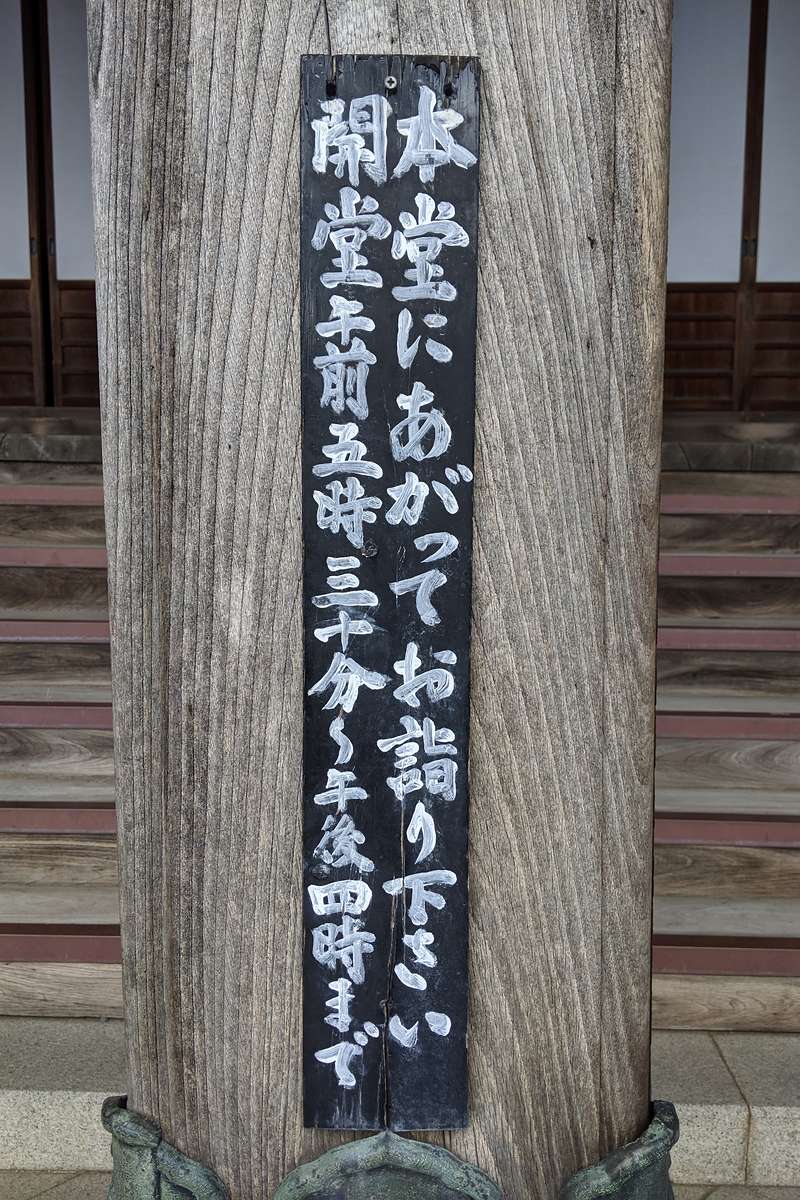 本堂にあがってお詣り下さい
開堂午前五時三十分～午後四時まで